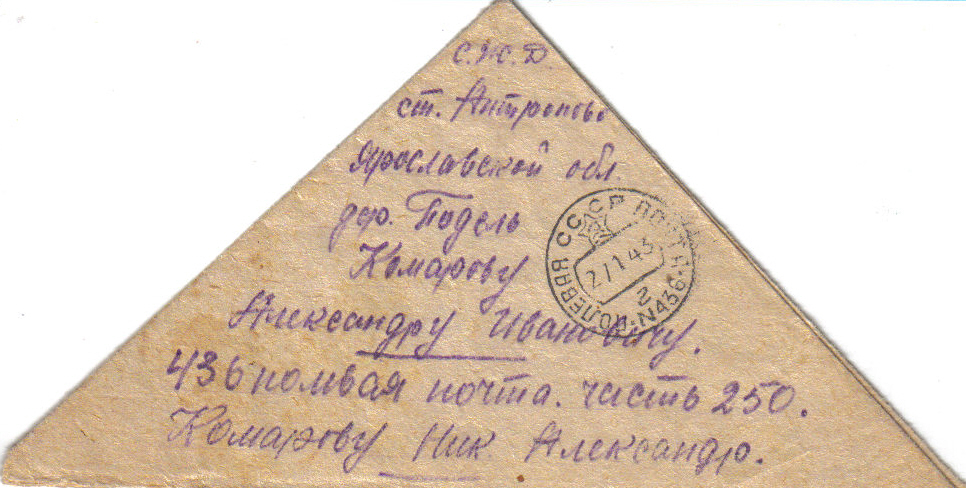 С.Ж.Д.
ст. Антропово
Ярославской обл.
дер. Подель
Комарову
Александру Ивановичу.
436 полевая почта. часть 250.
Комарову Ник Александр.
ПОЛЕВАЯ СССР ПОЧТА N436
2/1 43
2